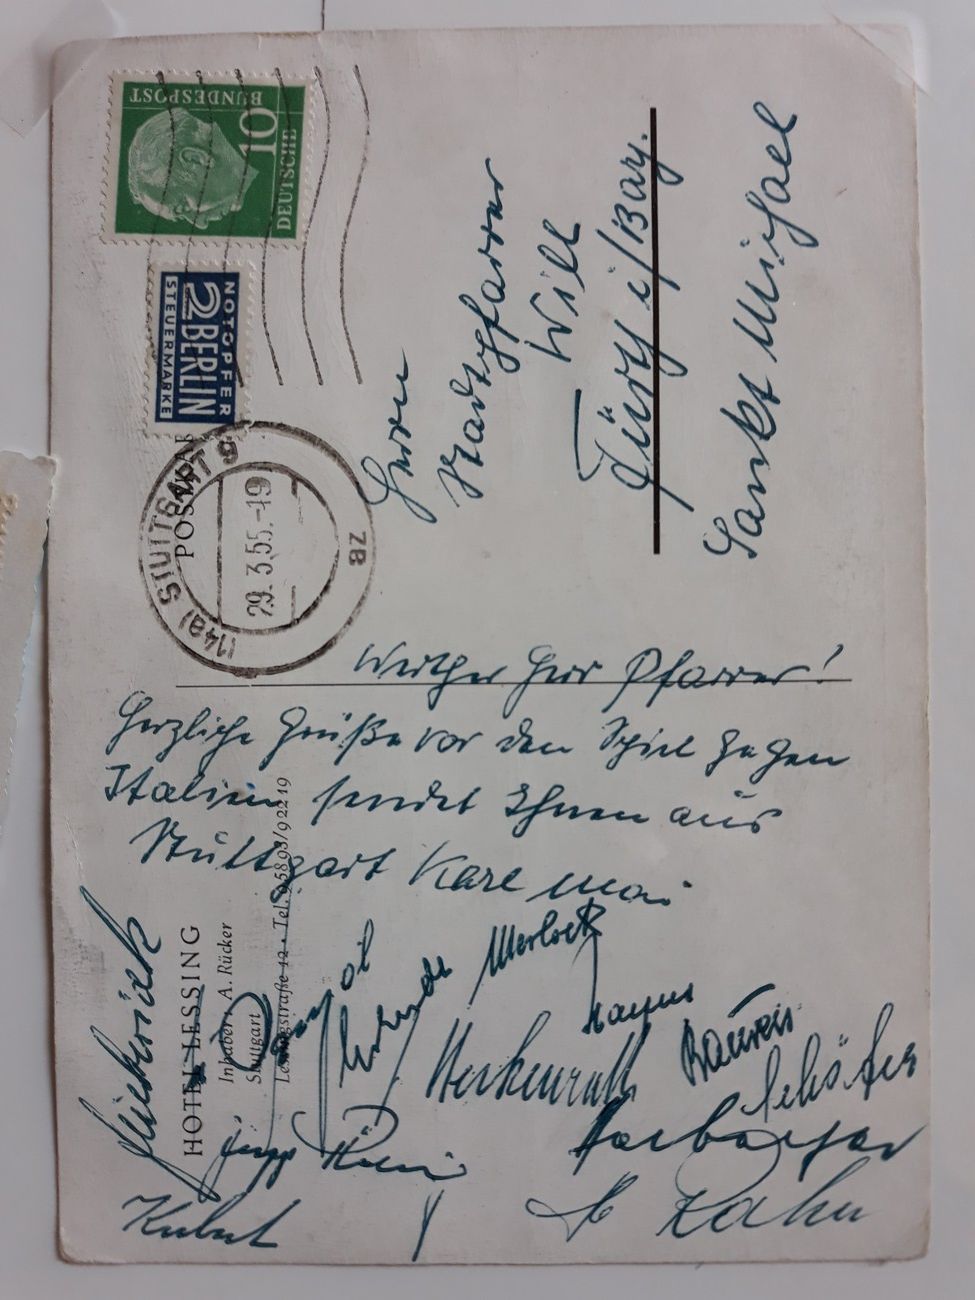 DEUTSCHE
BUNDESPOST
10
NOTOPFER
2 BERLIN
STEUERMARKE
(14a) STUTTGART 9
29. 3. 55. -19
ZB
POSTKAR
Herrn
Stadtpfarrer
Will
Fürth i/Bay.
Sankt Michael
Werther Herr Pfarrer!
Herzliche Grüße vor dem Spiel gegen
Italien sendet Ihnen aus
Stuttgart Karl Mai
HOTEL LESSING
Inhaber: A. Rücker
Stuttgart
Lessingstraße 12 • Tel. 95893/92219
Morlock
Herkenrath
Bauweis
Schäfer
Herberger
Kubsch
Rahn